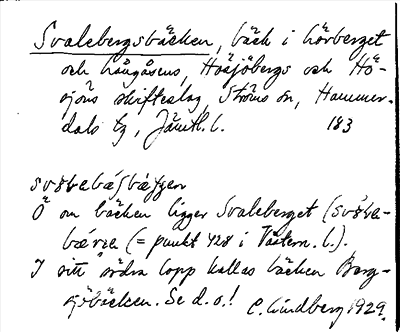 Svalebergsbäcken, bäck i Lövberget
och Långåsens, Hösjöbergs och Hö-
sjöns skifteslag, Ströms sn, Hammer-
dals tg, Jämtl. l. 183
Ö om bäcken ligger Svaleberget
(= punkt 428 i Västern. l.).
I sitt södra lopp kallas bäcken Borg-
sjöbäcken. Se d. o.!
C. Lindberg 1929.